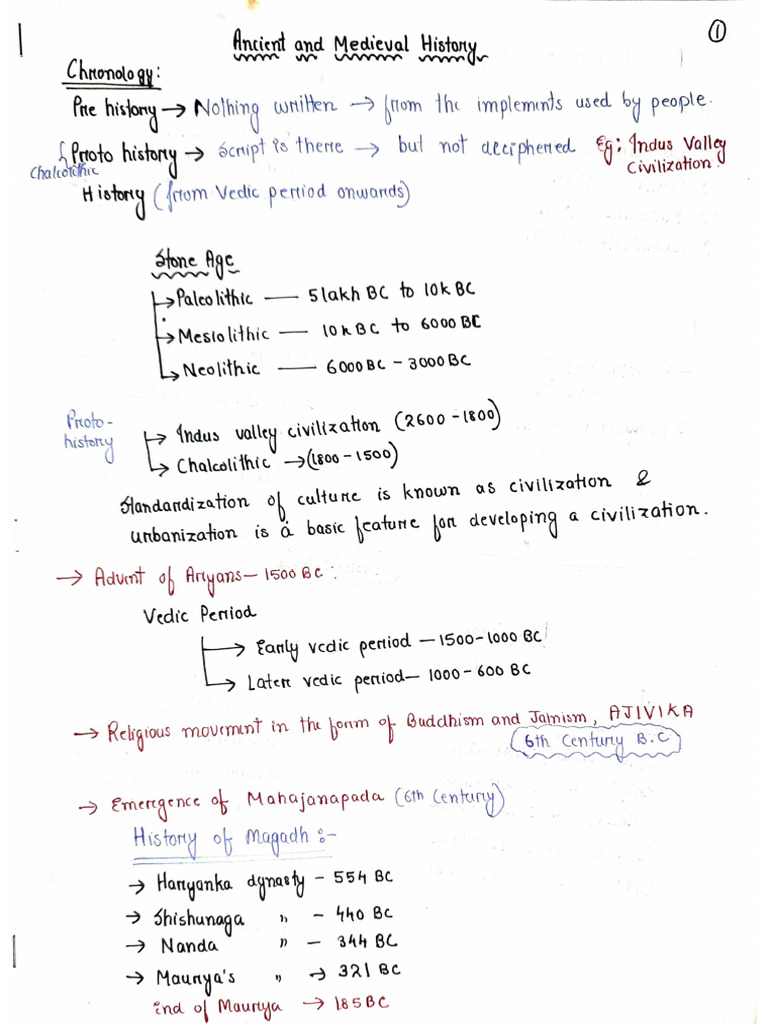 ①
Ancient and Medieval History
Chronology:
Pre history → Nothing written → from the implements used by people.
Proto history → Script is there → but not deciphered Eg: Indus Valley
Chalcolithic Civilization
History (from Vedic period onwards)
Stone Age
→ Paleolithic — 5 lakh BC to 10k BC
→ Mesiolithic — 10k BC to 6000 BC
→ Neolithic — 6000 BC - 3000 BC
Proto-
history
→ Indus valley civilization (2600 - 1800)
→ Chalcolithic → (1800 - 1500)
Standardization of culture is known as civilization &
urbanization is a basic feature for developing a civilization.
→ Advent of Aryans - 1500 BC :
Vedic Period
→ Early vedic period - 1500-1000 BC
→ Later vedic period - 1000 - 600 BC
→ Religious movement in the form of Buddhism and Jainism, AJIVIKA
6th Century B.C
→ Emergence of Mahajanapada (6th Century)
History of Magadh :-
→ Haryanka dynasty - 554 BC
→ Shishunaga " - 440 BC
→ Nanda " - 344 BC
→ Maurya's " → 321 BC
End of Maurya → 185 BC